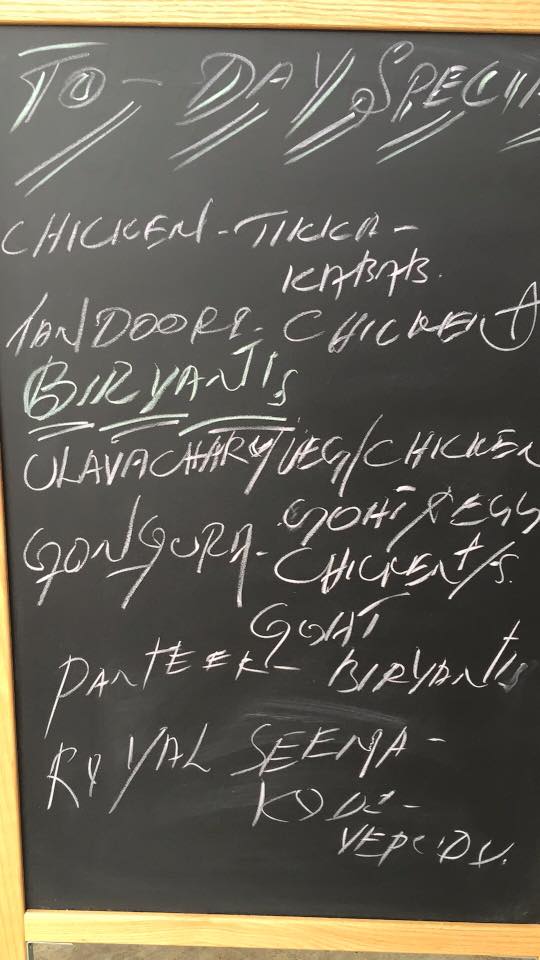 TO-DAY SPECIA
CHICKEN-TIKKA-
KABAB.
TANDOORI-CHICKEN
BIRYANIS
ULAVACHARY VEG/CHICKEN
GOAT/EGG
GONGURA-CHICKEN/S.
GOAT
PANEER-BIRYANIS
ROYAL SEEMA-
KODI-
VEPUDU.